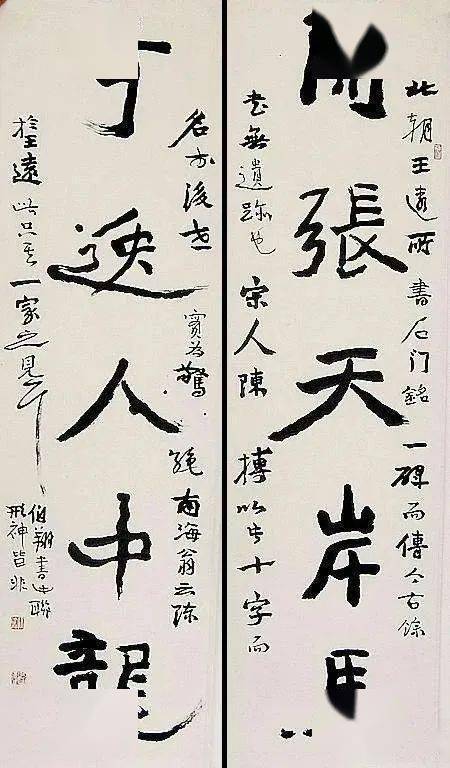 北朝王遠所書石门銘一碑而傳今古餘
張天岸
书無遺跡也宋人陳摶以此十字而
名亦後世實為驚絕南海翁云
逸人中
於王遠此只是一家之見耳
伯翔書此聯
形神皆非